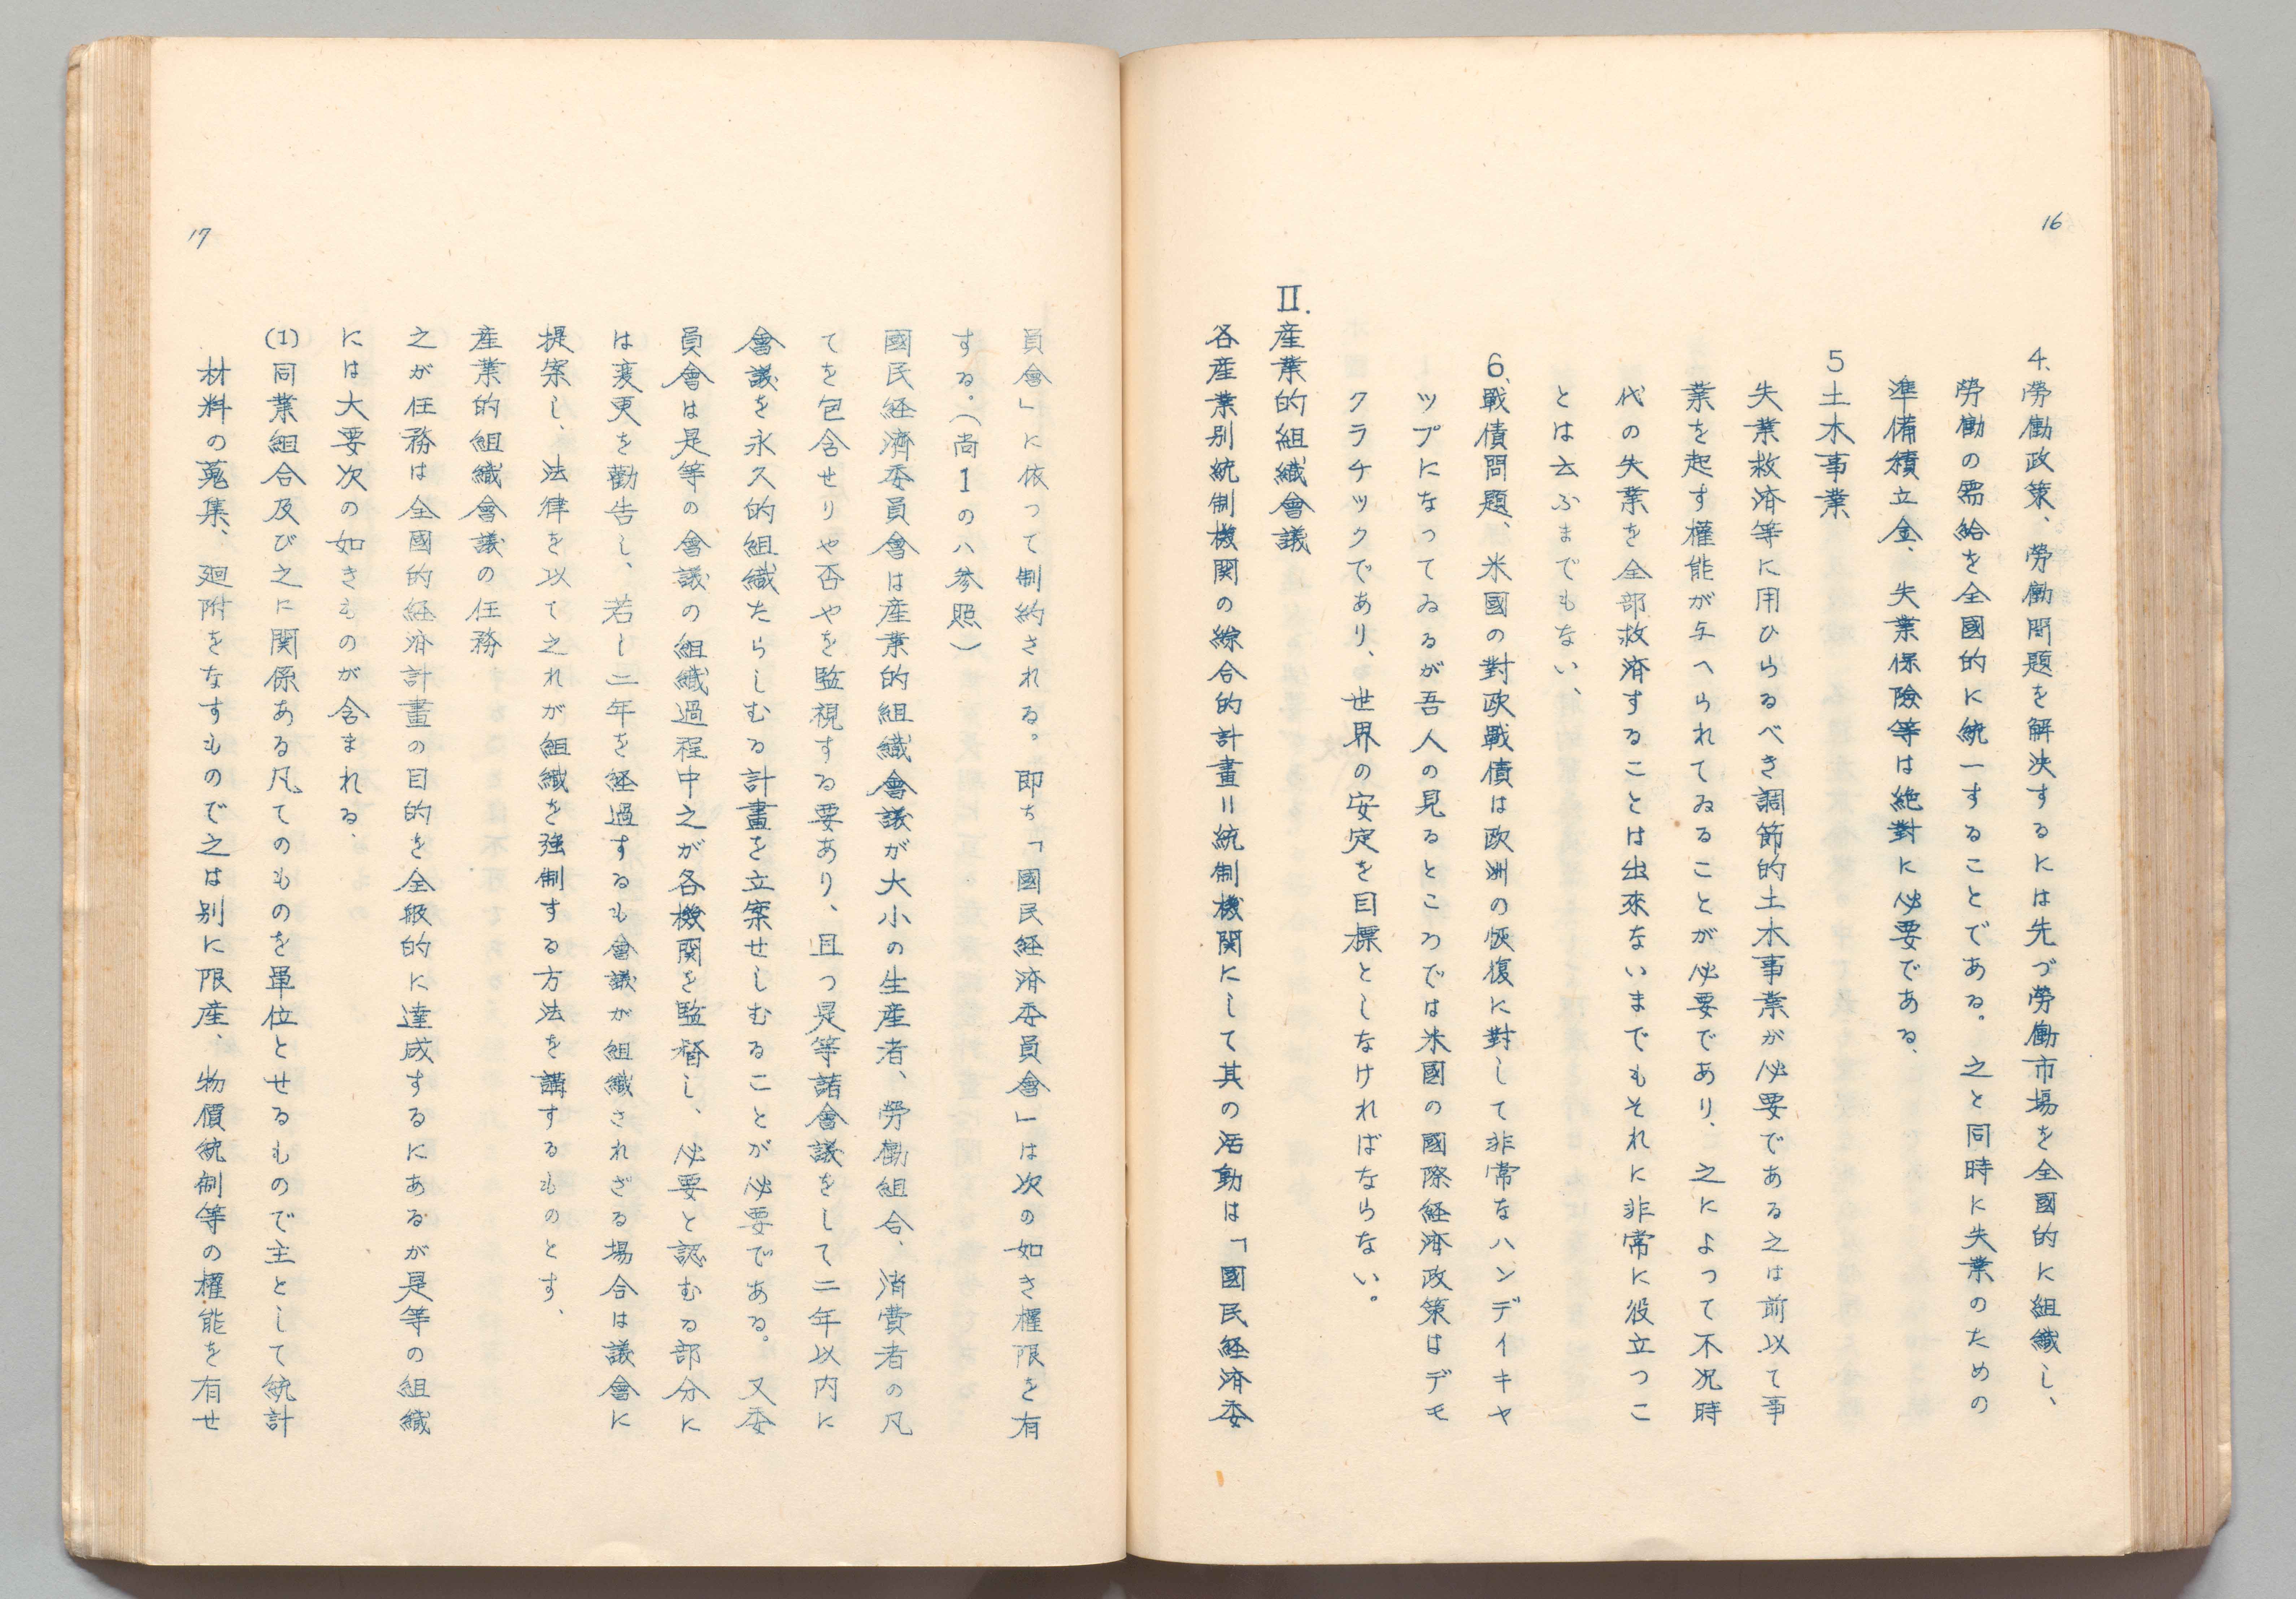 16
4.勞働政策、勞働問題を解決するには先づ勞働市場を全國的に組織し、
勞働の需給を全國的に統一することである。之と同時に失業のための
準備積立金、失業保險等は絶對に必要である、
5土木事業
失業救済等に用ひらるべき調節的土木事業が必要である之は前以て事
業を起す權能が与へられてゐることが必要であり、之によつて不況時
代の失業を全部救済することは出來ないまでもそれに非常に役立つこ
とは云ふまでもない、
6、戰債問題、米國の對欧戰債は欧洲の恢復に對して非常なハンデイキヤ
ツプになってゐるが吾人の見るところでは米國の國際経済政策はデモ
クラチックであり、世界の安定を目標としなければならない。
Ⅱ.産業的組織會議
各産業別統制機関の綜合的計畫=統制機関にして其の活動は「國民経済委
17
員會」に依って制約される。即ち「國民経済委員會」は次の如き權限を有
する。(尚1のハ参照)
國民経濟委員會は産業的組織會議が大小の生産者、勞働組合、消費者の凡
てを包含せりや否やを監視する要あり、且つ是等諸會議をして二年以内に
會議を永久的組織たらしむる計畫を立案せしむることが必要である。又委
員會は是等の會議の組織過程中之が各機関を監督し、必要と認むる部分に
は変更を勸告し、若し二年を経過するも會議が組織されざる場合は議會に
提案し、法律を以て之れが組織を強制する方法を講するものとす、
産業的組織會議の任務
之が任務は全國的経済計畫の目的を全般的に達成するにあるが是等の組織
には大要次の如きものが含まれる、
(1)同業組合及び之に関係ある凡てのものを單位とせるもので主として統計
材料の蒐集、廻附をなすもので之は別に限産、物價統制等の權能を有せ